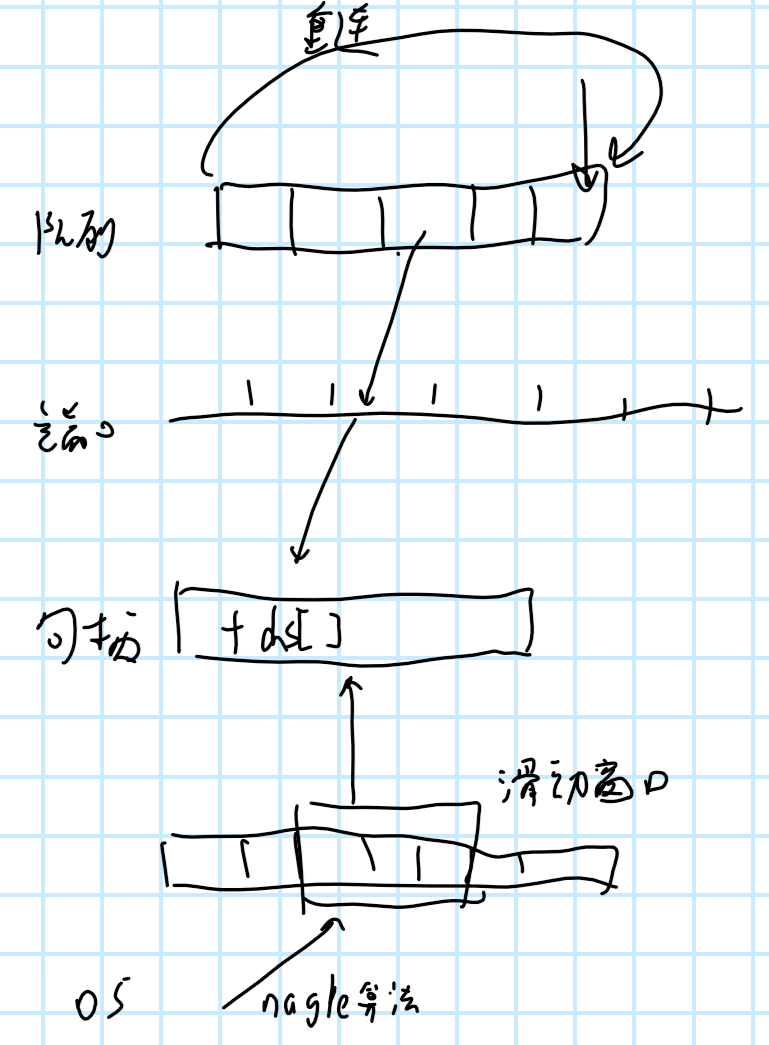 重连
队列
句柄
fds[]
滑动窗口
OS
nagle算法